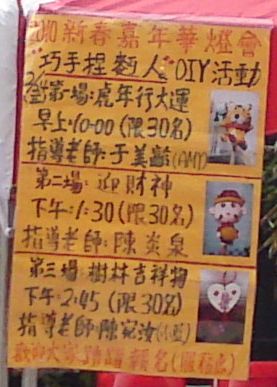 2010新春嘉年華燈會
"巧手捏麵人"DIY活動
第一場:虎年行大運
早上:10:00(限30名)
指導老師:于美齡(AMY)
第二場:迎財神
下午:1:30(限30名)
指導老師:陳炎泉
第三場:樹林吉祥物
下午:2:45(限30名)
指導老師:陳宛汝
歡迎大家踴躍報名